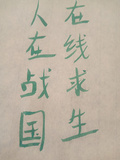 在线求生
人在战国